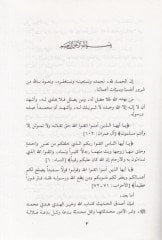 بسم الله الرحمن الرحيم
إن الحمد لله، نحمده ونستعينه ونستغفره، ونعوذ بالله من
شرور أنفسنا وسيئات أعمالنا.
من يهده الله فلا مضل له، ومن يضلل فلا هادي له، وأشهد
أن لا إله إلا الله وحده لا شريك له، وأشهد أن محمدا عبده ورسوله.
﴿يا أيها الذين آمنوا اتقوا الله حق تقاته ولا تموتن إلا
وأنتم مسلمون﴾ [آل عمران: ١٠٢]
﴿يا أيها الناس اتقوا ربكم الذي خلقكم من نفس واحدة
وخلق منها زوجها وبث منهما رجالا كثيرا ونساء واتقوا الله الذي
تساءلون به والأرحام إن الله كان عليكم رقيبا﴾ [النساء: ١]
﴿يا أيها الذين آمنوا اتقوا الله وقولوا قولا سديدا يصلح لكم
أعمالكم ويغفر لكم ذنوبكم ومن يطع الله ورسوله فقد فاز فوزا
عظيما﴾ [الأحزاب: ٧٠ - ٧١]
أما بعد:
فإن أصدق الحديث كتاب الله، وخير الهدي هدي محمد
ﷺ، وشر الأمور محدثاتها، وكل محدثة بدعة، وكل بدعة ضلالة
٣